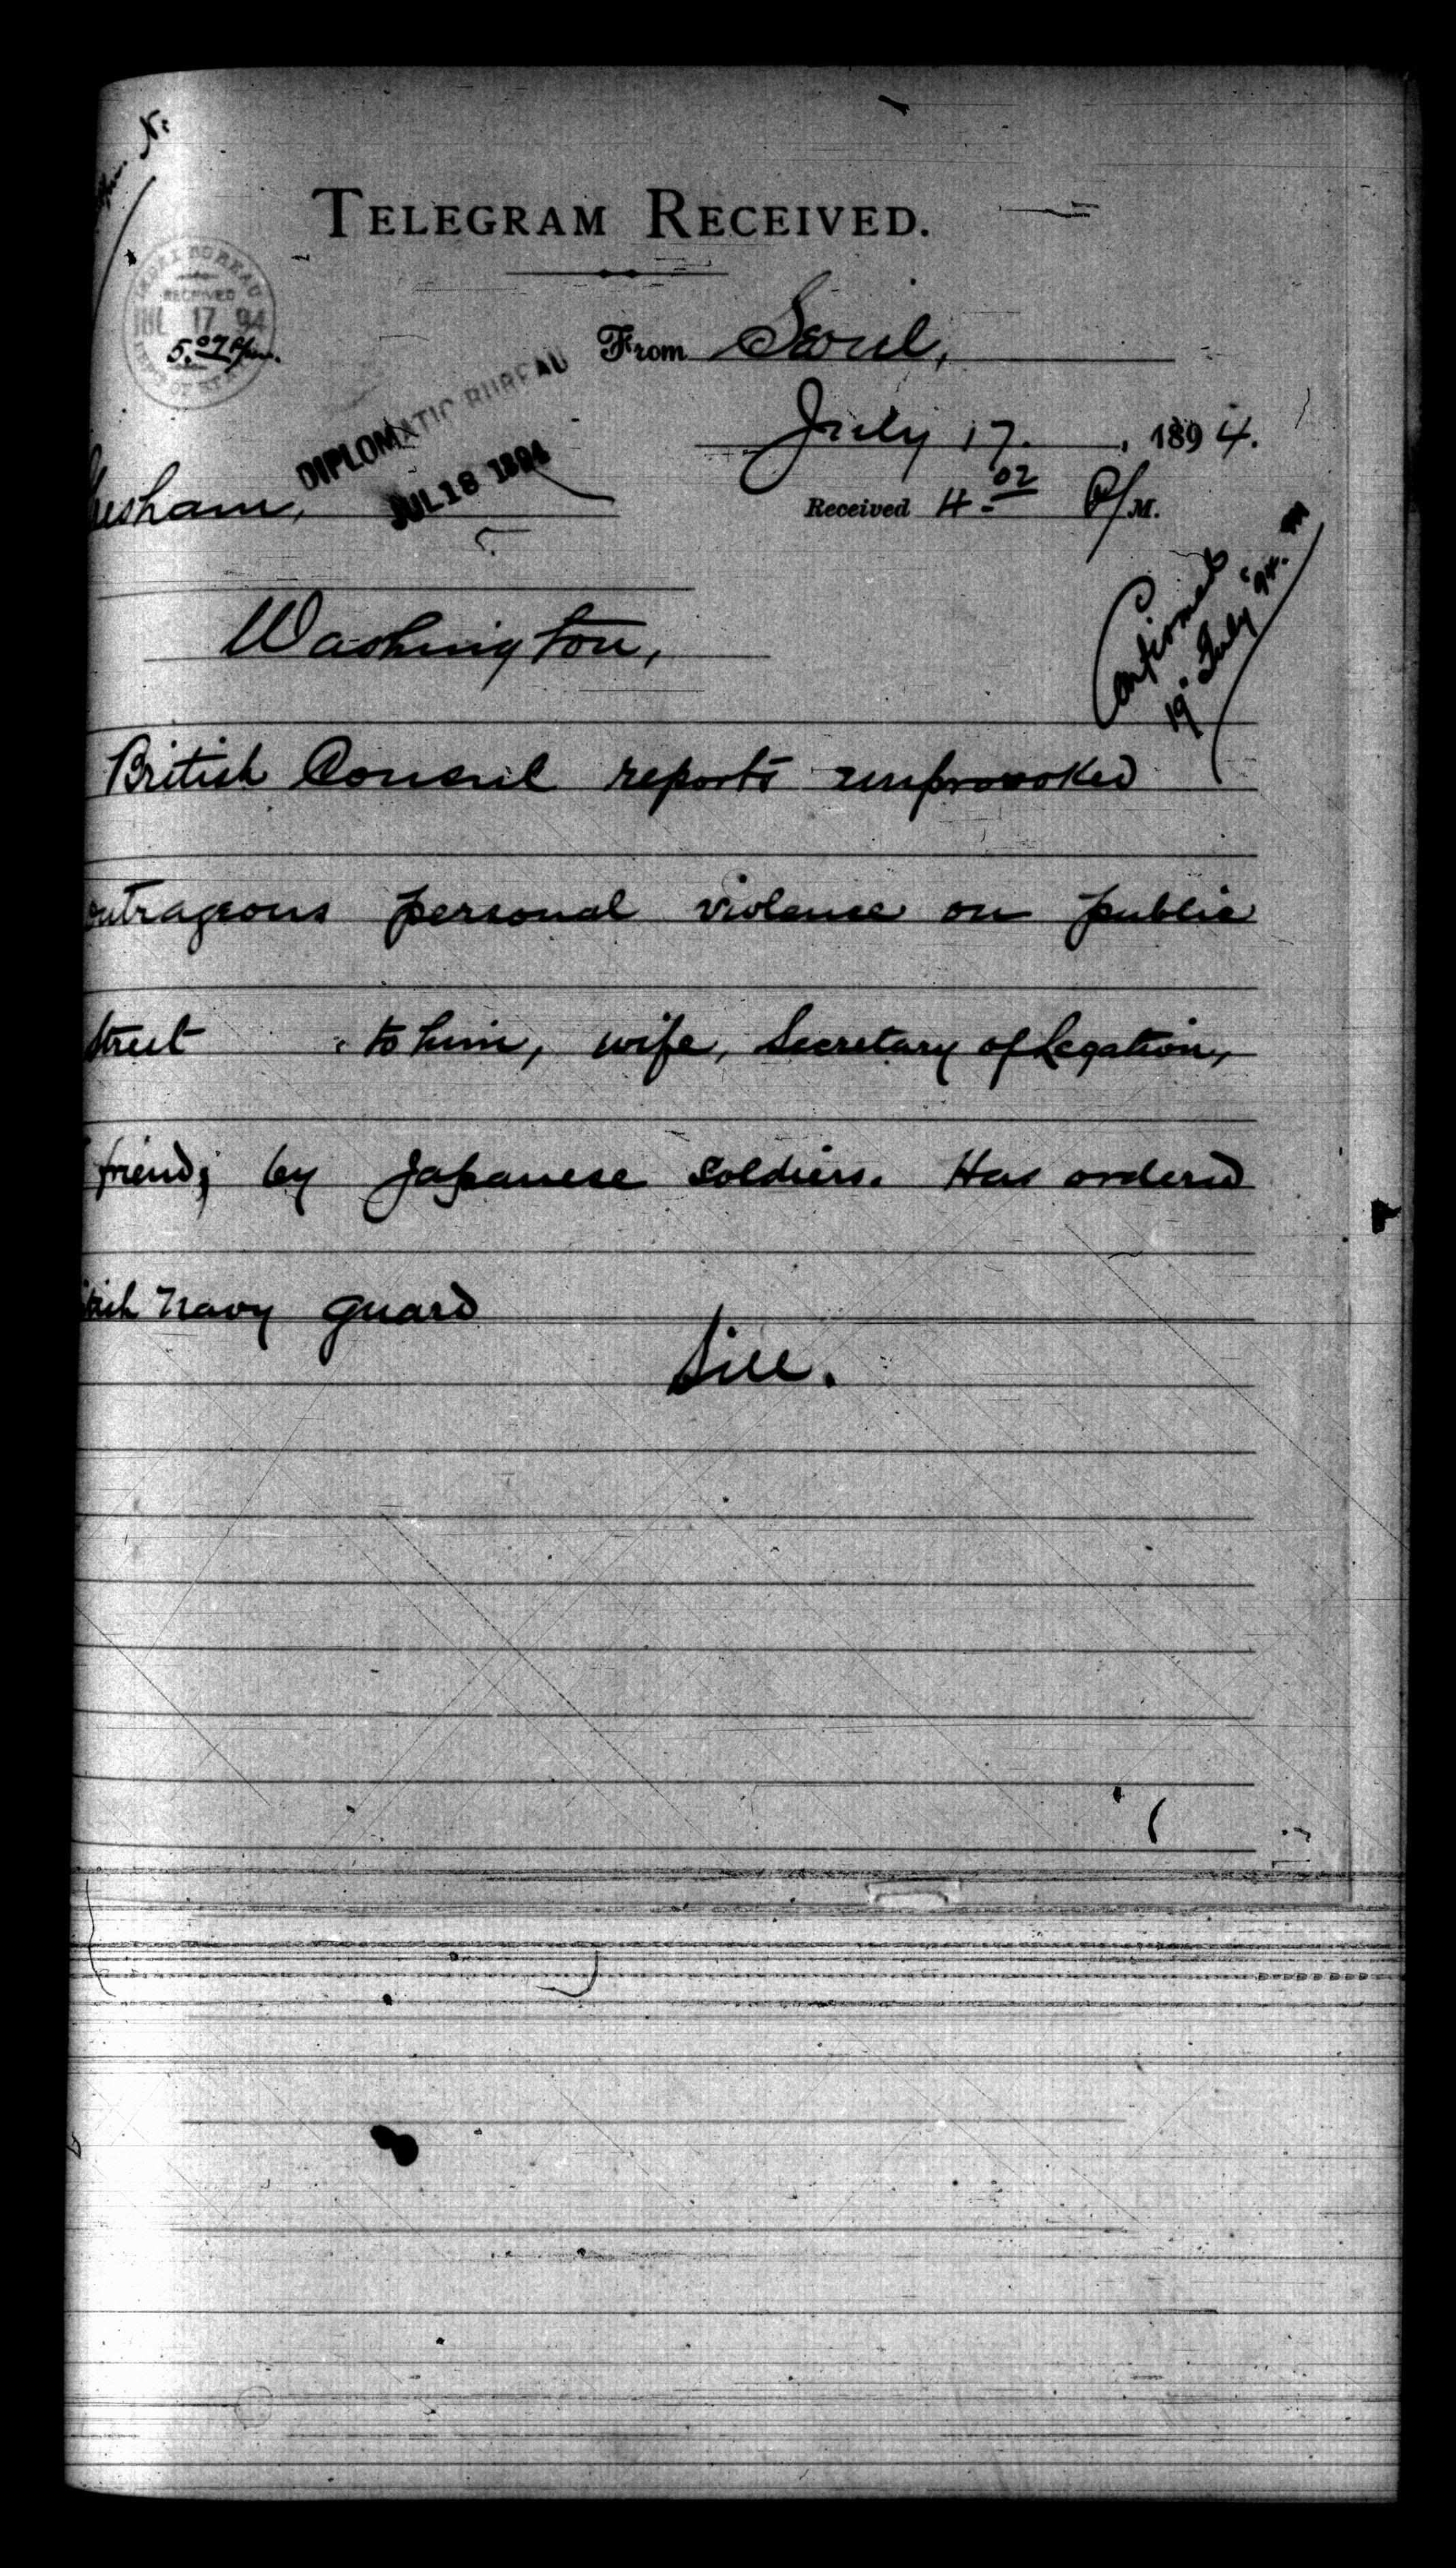 TELEGRAM RECEIVED.
INDEX BUREAU
RECEIVED
JUL 17 94
5.07 P.m.
DEP'T OF STATE
From Seoul,
DIPLOMATIC BUREAU
JUL 18 1894
July 17. , 1894.
Gresham,
Received 4.02 P/M.
Washington,
Confirmed
19" July "94.
British Consul reports unprovoked
outrageous personal violence on public
street to him, wife, Secretary of Legation,
friend; by Japanese soldiers. Has ordered
British navy guard
Sill.